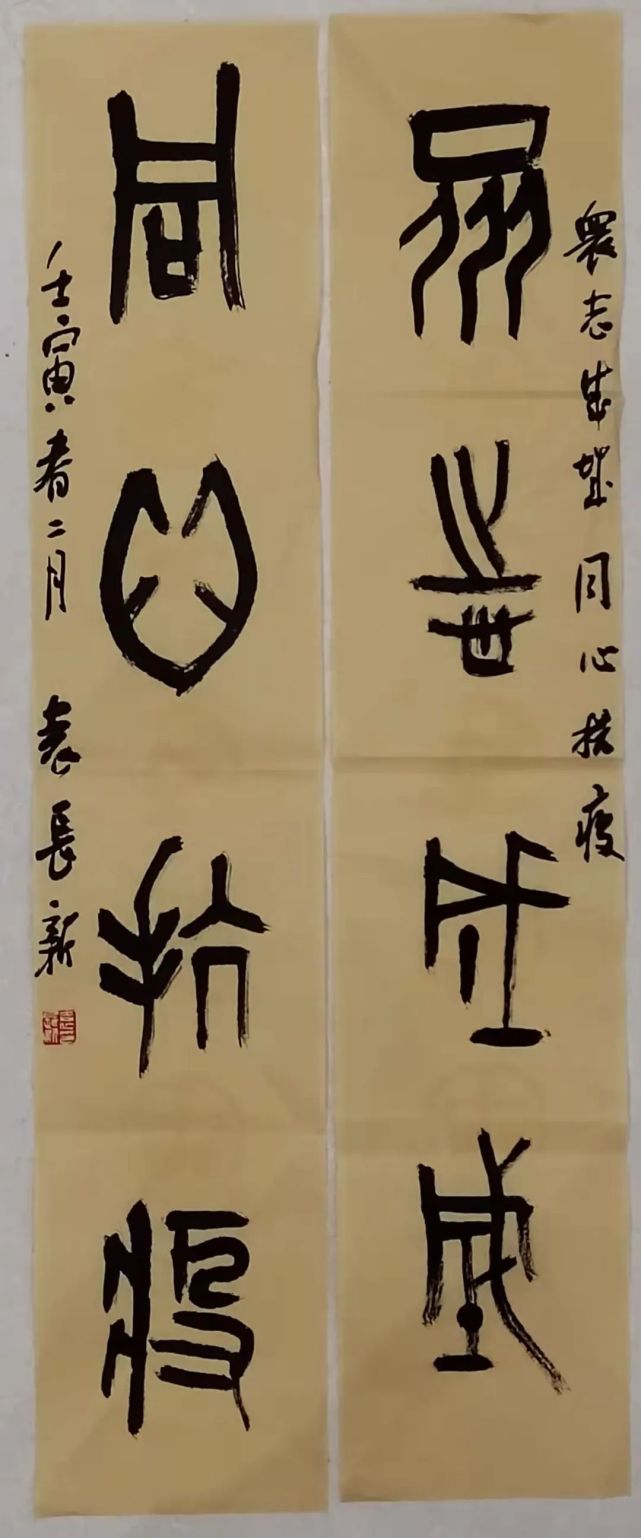 眾志成城 同心抗疫
眾志成城
同心抗疫
壬寅春二月 袁長新